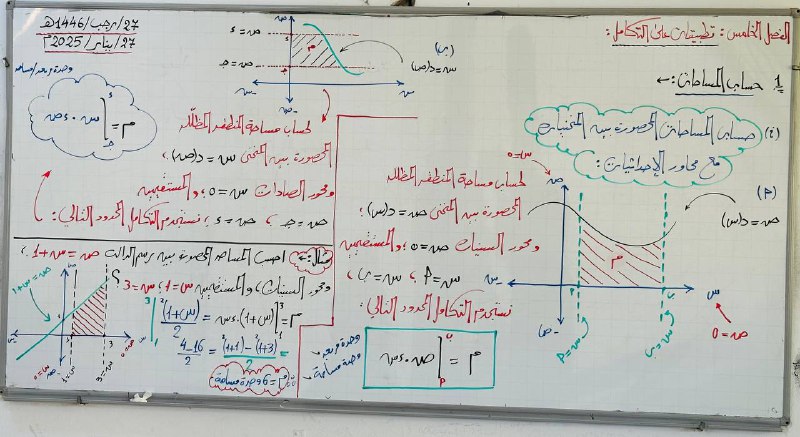 27/رجب/1446هـ
27/يناير/2025م
الفصل الخامس: تطبيقات على التكامل:
1 حساب المساحات: ←
(i) حساب المساحات المحصورة بين المنحنيات
مع محاور الإحداثيات:
(P)
لحساب مساحة المنطقة المظللة
المحصورة بين المنحنى ص = د(س)،
ومحور السينات ص = 0 والمستقيمين
س = P، س = ب،
نستخدم التكامل المحدود التالي:
م = ∫ ص . ءس
ب
P
س = 0
ص
ص = د(س)
م
س
-س
-ص
ص = 0
س = P
س = ب
(ب)
س = د(ص)
ص = ء
ص = جـ
م
س
-س
-ص
لحساب مساحة المنطقة المظللة
المحصورة بين المنحنى س = د(ص)،
ومحور الصادات س = 0 والمستقيمين
ص = جـ، ص = ء، نستخدم التكامل المحدود التالي:
وحدة مربعة/مساحة
م = ∫ س . ءص
ء
جـ
مثال: ← احسب المساحة المحصورة بين رسم الدالة ص = س + 1،
ومحور السينات، والمستقيمين س = 1، س = 3 ؟
م = ∫ (س + 1) . ءس = (س + 1)² / 2
3
1
= (3 + 1)² - (1 + 1)² / 2 = 16 - 4 / 2
∴ م = 6 وحدة مساحة
وحدة مربعة
وحدة مساحة
ص = س + 1
س = 1
س = 3
س = 0
ص = 0